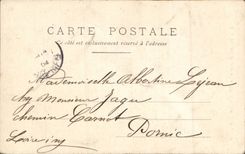 CARTE POSTALE
Ce côté est exclusivement réservé à l'adresse
Mademoiselle Albertine Lejean
chez Monsieur Jague
chemin Carnot
Pornic
Loire inf